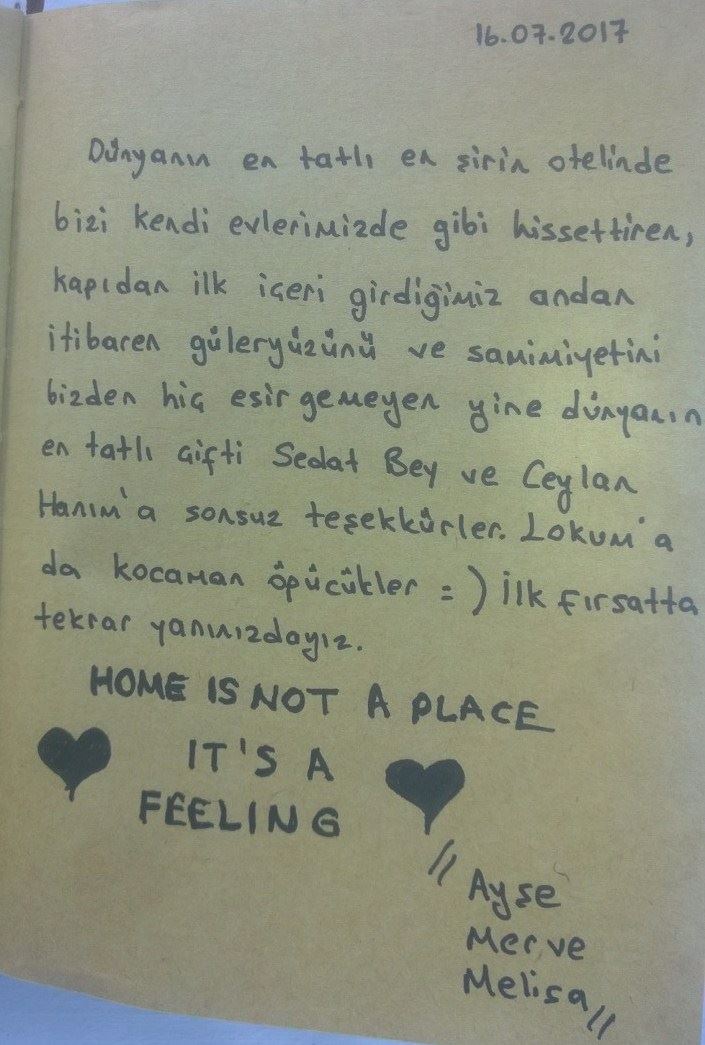 16.07.2017
Dünyanın en tatlı en şirin otelinde
bizi kendi evlerimizde gibi hissettiren,
kapıdan ilk içeri girdiğimiz andan
itibaren güleryüzünü ve samimiyetini
bizden hiç esirgemeyen yine dünyanın
en tatlı çifti Sedat Bey ve Ceylan
Hanım'a sonsuz teşekkürler. Lokum'a
da kocaman öpücükler =) İlk fırsatta
tekrar yanınızdayız.
HOME IS NOT A PLACE
IT'S A
FEELING
" Ayşe
Merve
Melisa "